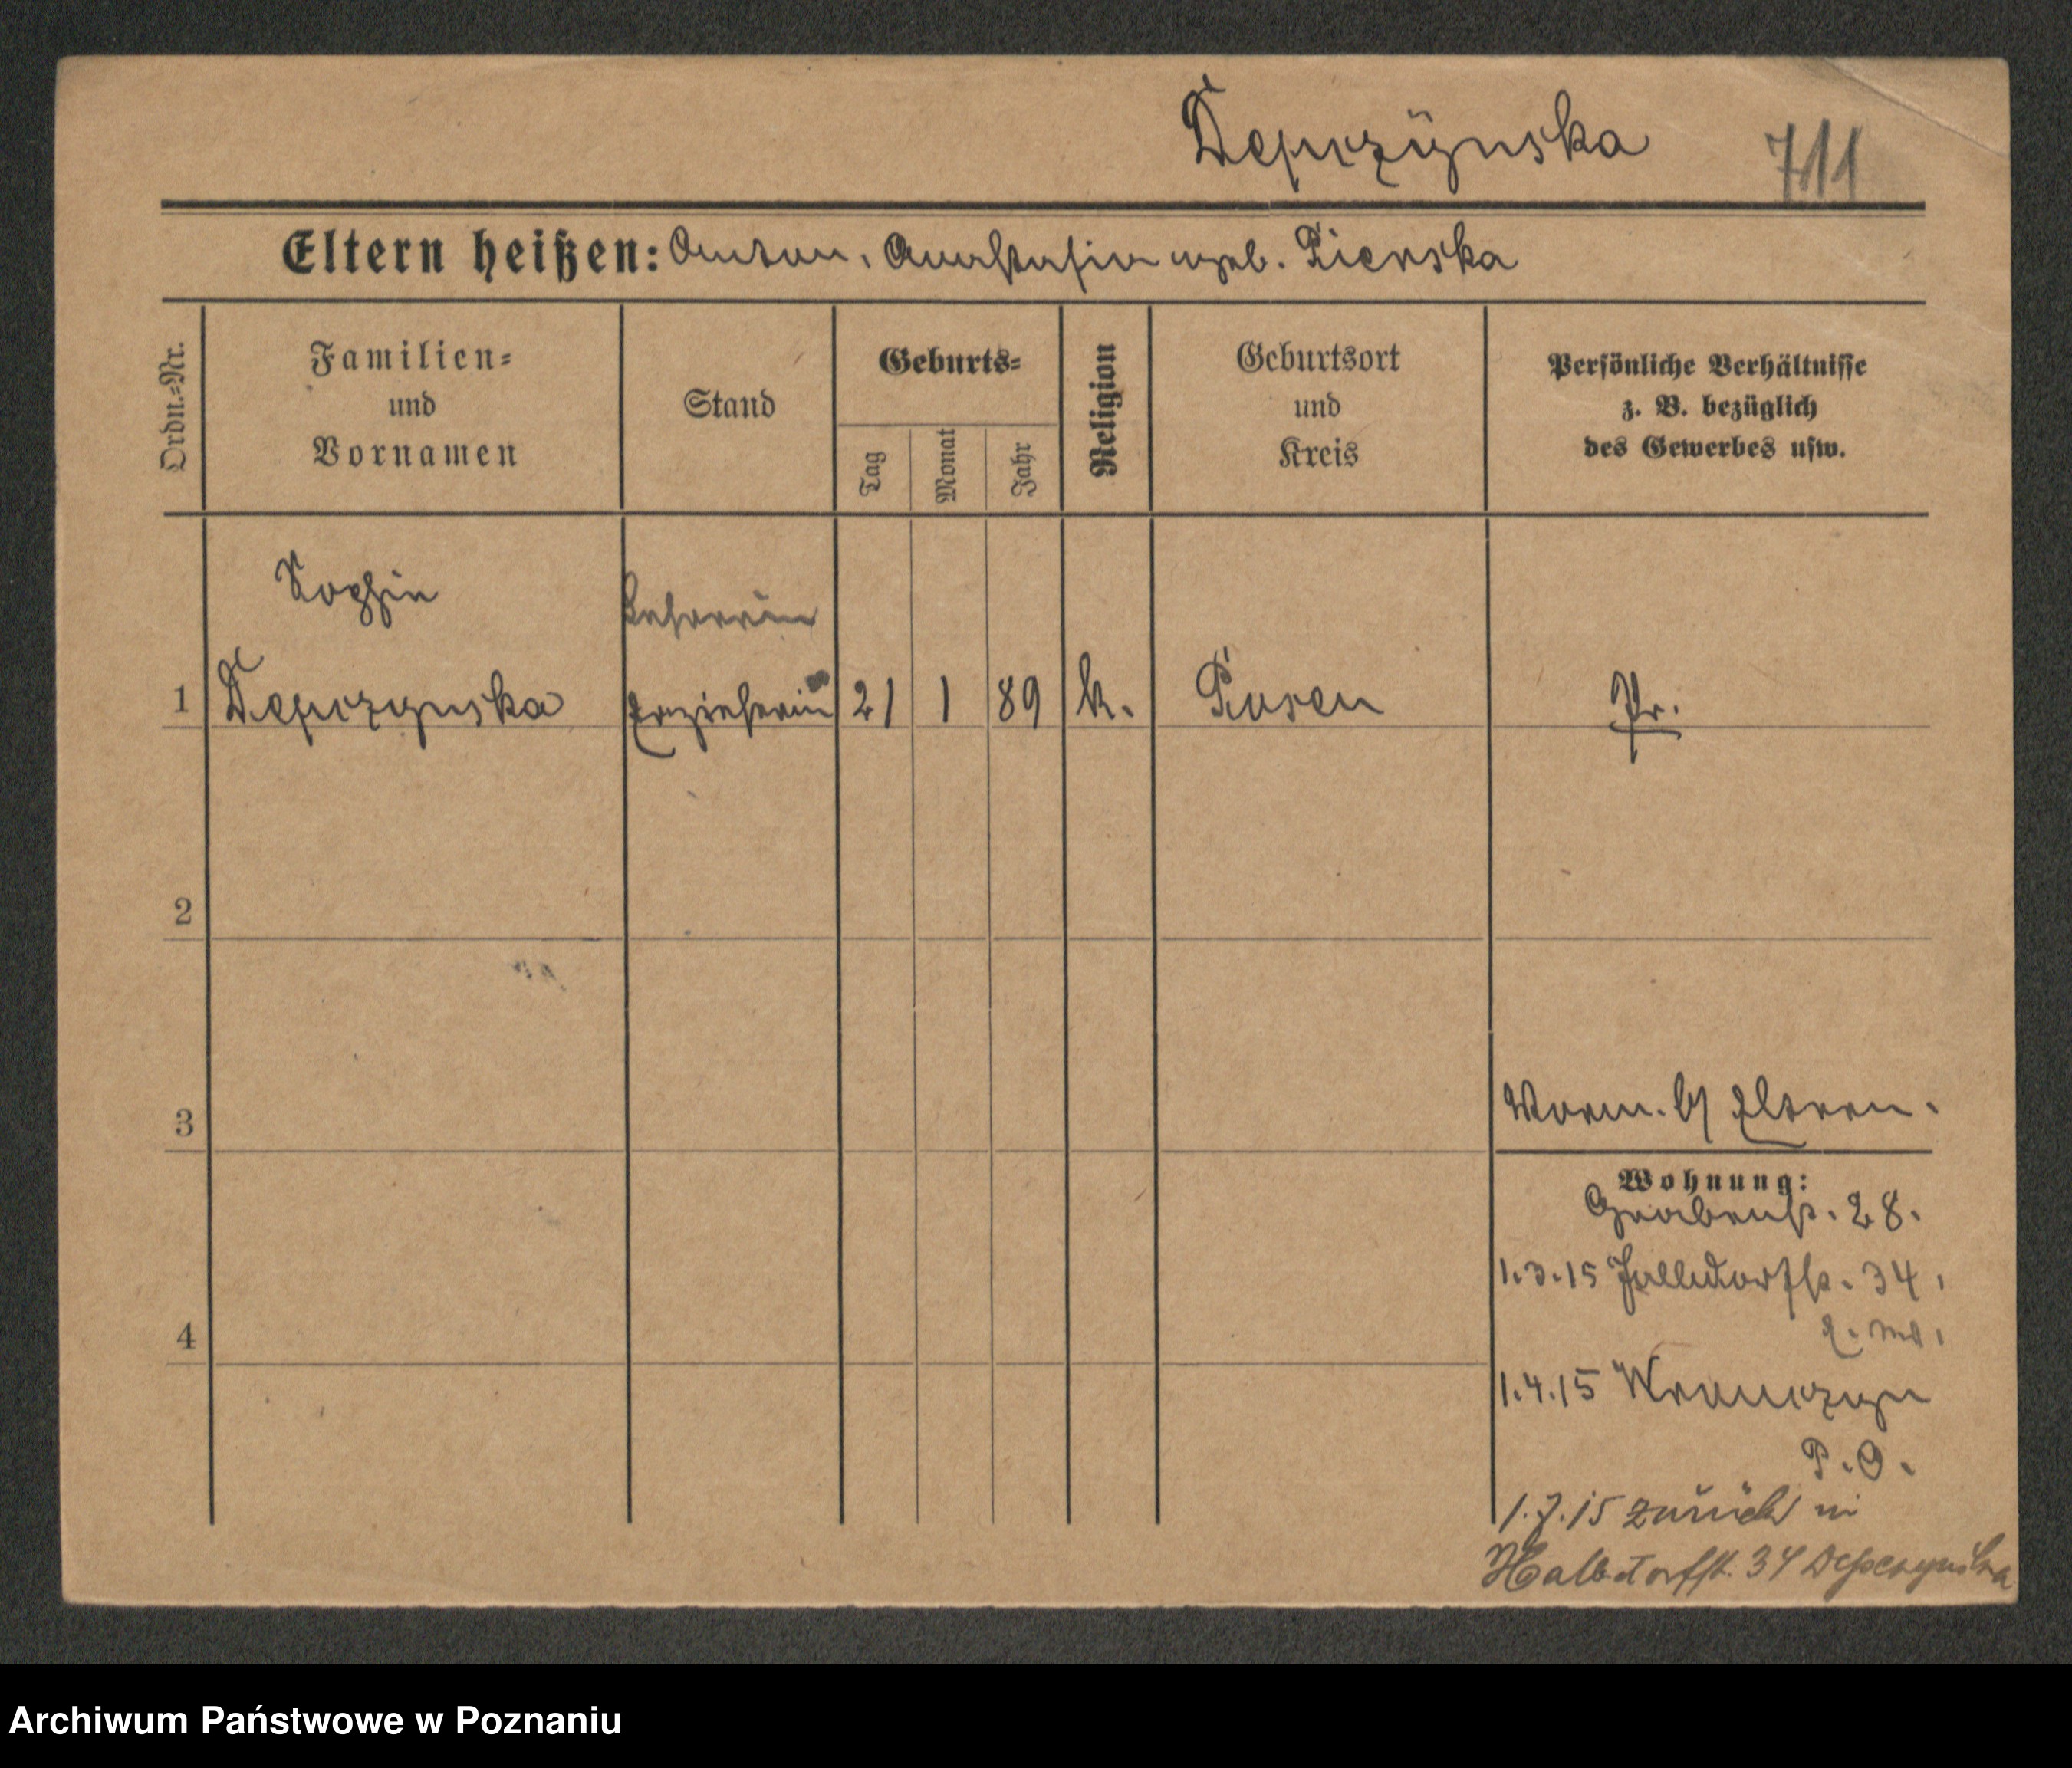 Depczÿnska 711
Eltern heißen: Anton, Anastasia geb. Pienska
Ordn.-Nr.
Familien-
und
Vornamen
Stand
Geburts-
Tag
Monat
Jahr
Religion
Geburtsort
und
Kreis
Persönliche Verhältnisse
z. B. bezüglich
des Gewerbes usw.
Sophie
Lehrerin
1 Depczynska Erzieherin 21 1 89 k. Posen Pr.
2
3
Vorm. b/ Eltern.
Wohnung:
Grabenstr. 28.
1.3.15 Halbdorfstr. 34.
4
1.4.15 Wronczyn
P. O.
1.7.15 zurück in
Halbdorfstr. 34 Depczynska
Archiwum Państwowe w Poznaniu